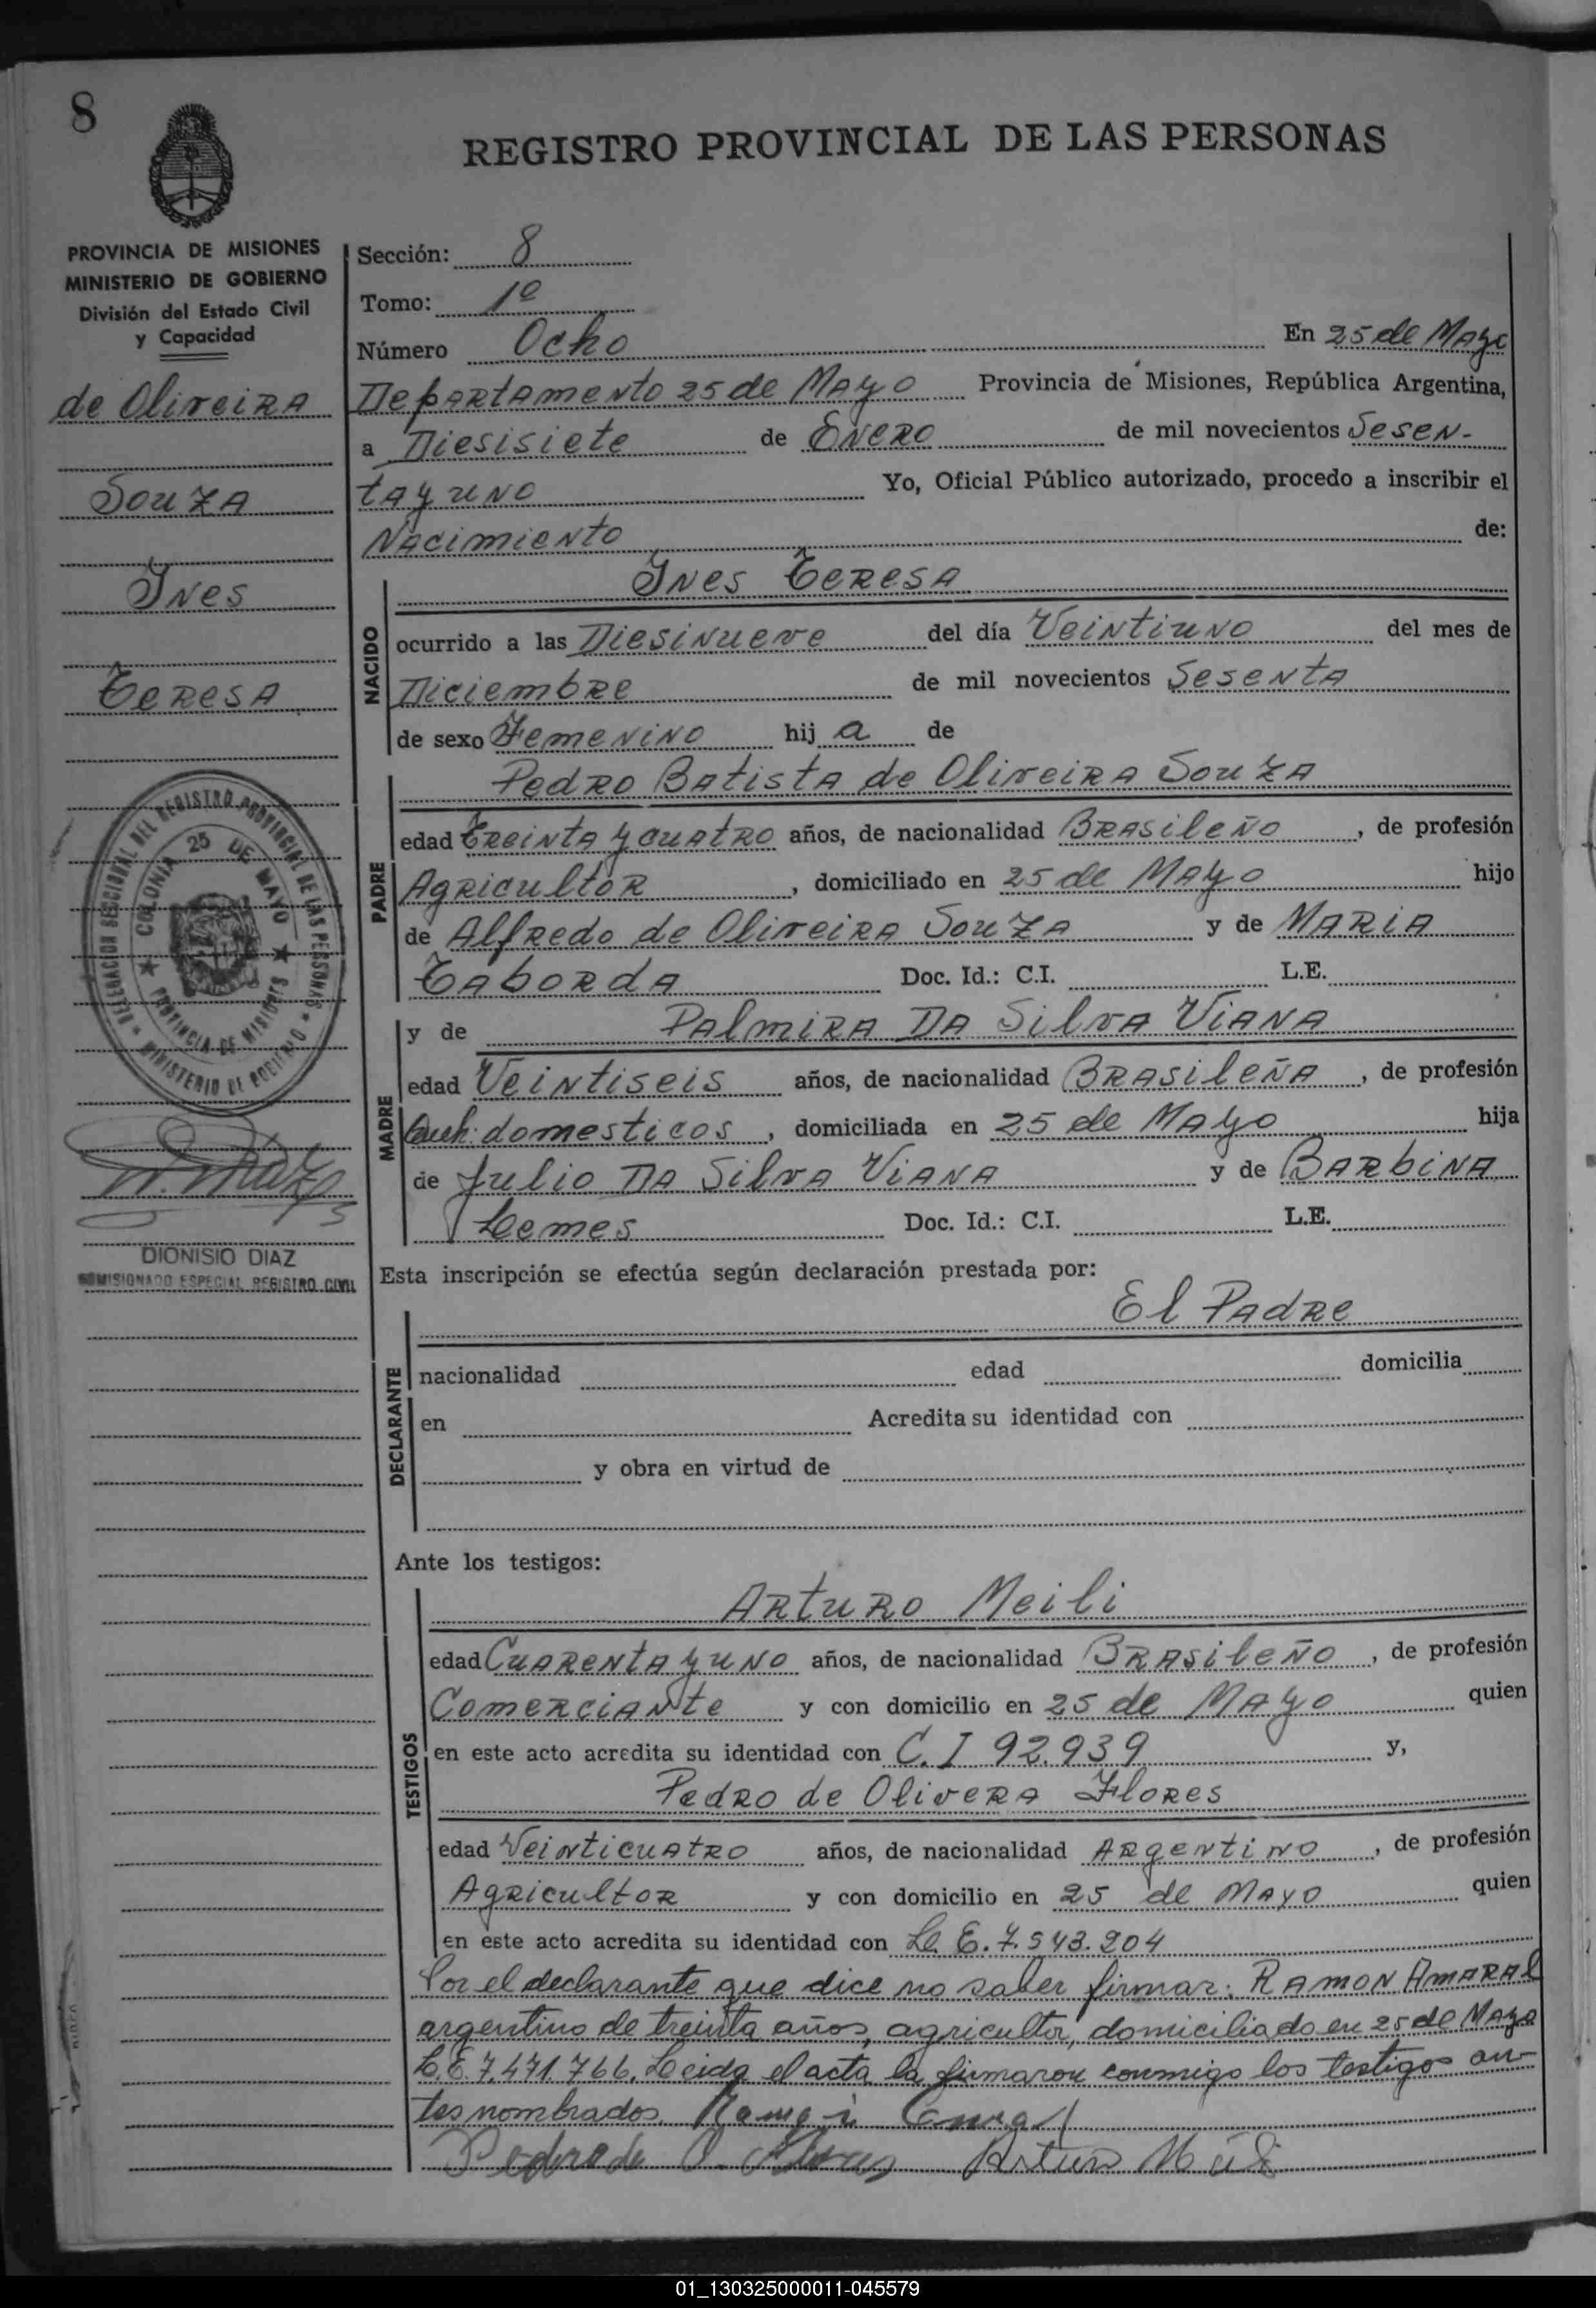 8
REGISTRO PROVINCIAL DE LAS PERSONAS
PROVINCIA DE MISIONES
MINISTERIO DE GOBIERNO
División del Estado Civil
y Capacidad
de Oliveira
Souza
Ines
Teresa
DELEGACION SECCIONAL DEL REGISTRO PROVINCIAL DE LAS PERSONAS ★ MINISTERIO DE GOBIERNO
★ COLONIA 25 DE MAYO ★ PROVINCIA DE MISIONES
DIONISIO DIAZ
COMISIONADO ESPECIAL REGISTRO CIVIL
Sección: 8
Tomo: 1º
Número Ocho En 25 de Mayo
Departamento 25 de Mayo Provincia de Misiones, República Argentina,
a Diesisiete de Enero de mil novecientos Sesen-
ta y uno Yo, Oficial Público autorizado, procedo a inscribir el
Nacimiento de:
NACIDO
Ines Teresa
ocurrido a las Diesinueve del día Veintiuno del mes de
Diciembre de mil novecientos Sesenta
de sexo Femenino hij a de
PADRE
Pedro Batista de Oliveira Souza
edad Treinta y cuatro años, de nacionalidad Brasileño, de profesión
Agricultor, domiciliado en 25 de Mayo hijo
de Alfredo de Oliveira Souza y de Maria
Taborda Doc. Id.: C.I. L.E.
MADRE
y de Palmira Da Silva Viana
edad Veintiseis años, de nacionalidad Brasileña, de profesión
domesticos, domiciliada en 25 de Mayo hija
de Julio Da Silva Viana y de Barbina
Lemes Doc. Id.: C.I. L.E.
Esta inscripción se efectúa según declaración prestada por:
DECLARANTE
El Padre
nacionalidad edad domicilia
en Acredita su identidad con
y obra en virtud de
Ante los testigos:
TESTIGOS
Arturo Meili
edad Cuarenta y uno años, de nacionalidad Brasileño, de profesión
Comerciante y con domicilio en 25 de Mayo quien
en este acto acredita su identidad con C. I 92.939 y,
Pedro de Olivera Flores
edad Veinticuatro años, de nacionalidad Argentino, de profesión
Agricultor y con domicilio en 25 de Mayo quien
en este acto acredita su identidad con L. E. 7.543.204
Por el declarante que dice no saber firmar: Ramon Amaral
argentino de treinta años, agricultor, domiciliado en 25 de Mayo
L.E. 7.471.766. Leida el acta la firmaron conmigo los testigos an-
tes nombrados.
Pedro de O. Arturo
01_130325000011-045579